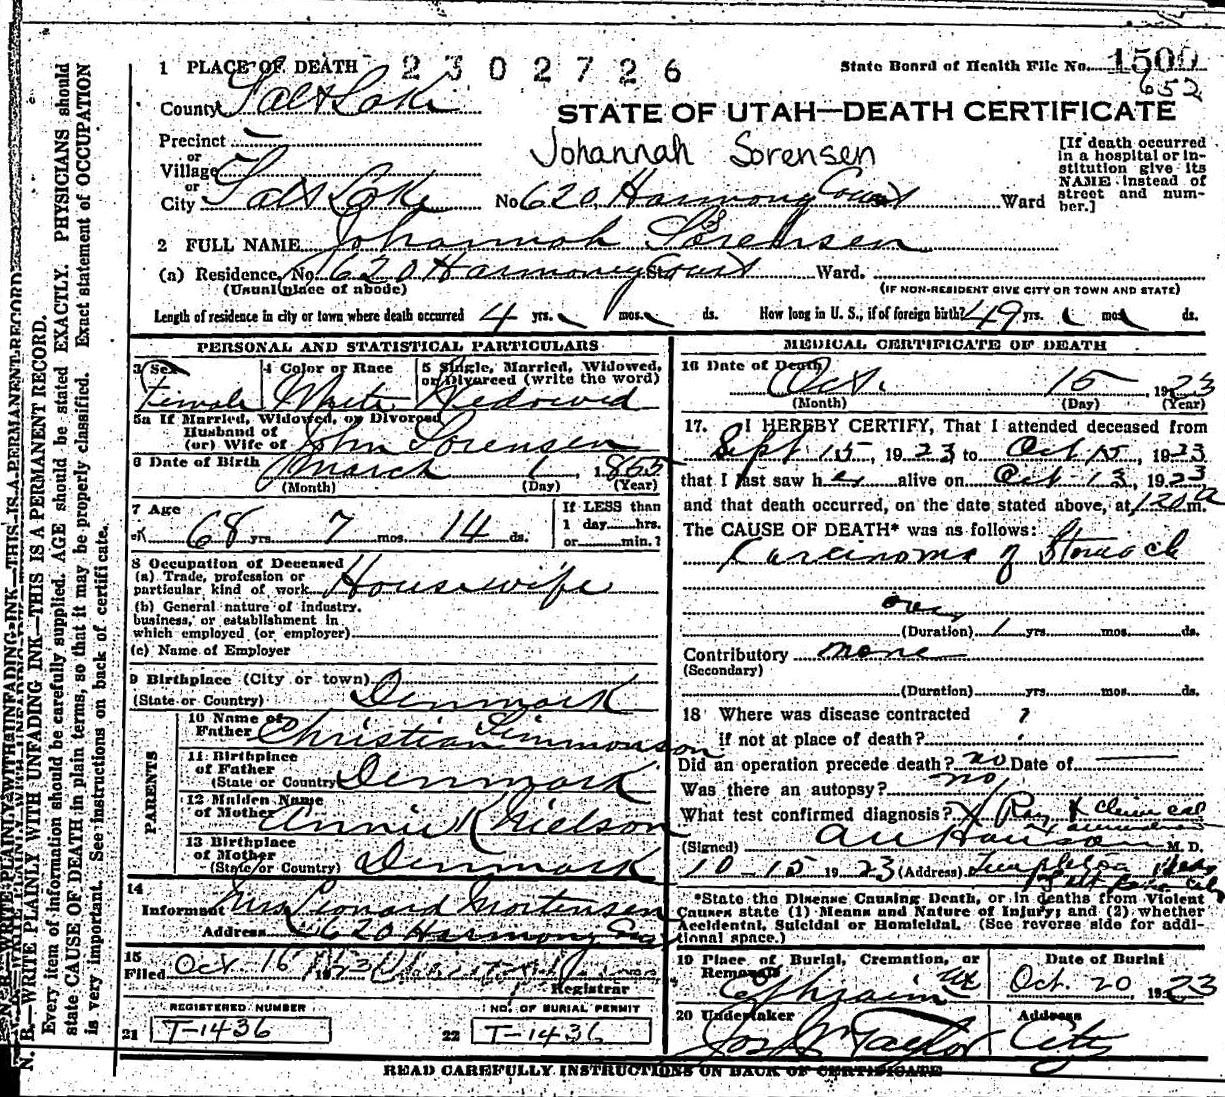 1 PLACE OF DEATH 2302726 State Board of Health File No. 1500
652
County Salt Lake
STATE OF UTAH—DEATH CERTIFICATE
Precinct
or
Village
or
City Salt Lake No 620 Harmony Court Ward
Johannah Sorensen
[If death occurred
in a hospital or in-
stitution give its
NAME instead of
street and num-
ber.]
2 FULL NAME Johannah Sorensen
(a) Residence, No. 620 Harmoney Court St. Ward.
(Usual place of abode) (IF NON-RESIDENT GIVE CITY OR TOWN AND STATE)
Length of residence in city or town where death occurred 4 yrs. mos. ds. How long in U. S., if of foreign birth? 49 yrs. mos. ds.
PERSONAL AND STATISTICAL PARTICULARS
3 Sex 4 Color or Race 5 Single, Married, Widowed,
or Divorced (write the word)
Female White Widowed
5a If Married, Widowed, or Divorced
Husband of
(or) Wife of John Sorensen
6 Date of Birth March 1 1855
(Month) (Day) (Year)
7 Age If LESS than
1 day hrs.
or min.?
68 yrs. 7 mos. 14 ds.
8 Occupation of Deceased
(a) Trade, profession or
particular kind of work Housewife
(b) General nature of industry,
business, or establishment in
which employed (or employer)
(c) Name of Employer
9 Birthplace (City or town)
(State or Country) Denmark
PARENTS
10 Name of
Father Christian Simmonson
11 Birthplace
of Father
(State or Country) Denmark
12 Maiden Name
of Mother Annie K Nielson
13 Birthplace
of Mother
(State or Country) Denmark
14
Informant Mrs Leonard Mortensen
Address 620 Harmony
15
Filed Oct 16 1923
Registrar
REGISTERED NUMBER NO. OF BURIAL PERMIT
21 T-1436 22 T-1436
MEDICAL CERTIFICATE OF DEATH
16 Date of Death
Oct. 15 1923
(Month) (Day) (Year)
17. I HEREBY CERTIFY, That I attended deceased from
Sept 15, 1923 to Oct 15, 1923
that I last saw her alive on Oct 13, 1923
and that death occurred, on the date stated above, at 120 a m.
The CAUSE OF DEATH* was as follows:
Carcinoma of Stomach
over
(Duration) 1 yrs. mos. ds.
Contributory none
(Secondary)
(Duration) yrs. mos. ds.
18 Where was disease contracted ?
if not at place of death?
Did an operation precede death? no Date of
Was there an autopsy? no
What test confirmed diagnosis? X Ray & clinical
(Signed) M. D.
10-15 1923 (Address)
Salt Lake City
*State the Disease Causing Death, or in deaths from Violent
Causes state (1) Means and Nature of Injury; and (2) whether
Accidental, Suicidal or Homicidal. (See reverse side for addi-
tional space.)
19 Place of Burial, Cremation, or
Removal
Date of Burial
Ephraim Ut Oct. 20, 1923
20 Undertaker Address
Jos Wm Taylor City
READ CAREFULLY INSTRUCTIONS ON BACK OF CERTIFICATE
N. B.—WRITE PLAINLY WITH UNFADING INK—THIS IS A PERMANENT RECORD.
Every item of information should be carefully supplied. AGE should be stated EXACTLY. PHYSICIANS should
state CAUSE OF DEATH in plain terms, so that it may be properly classified. Exact statement of OCCUPATION
is very important. See instructions on back of certificate.